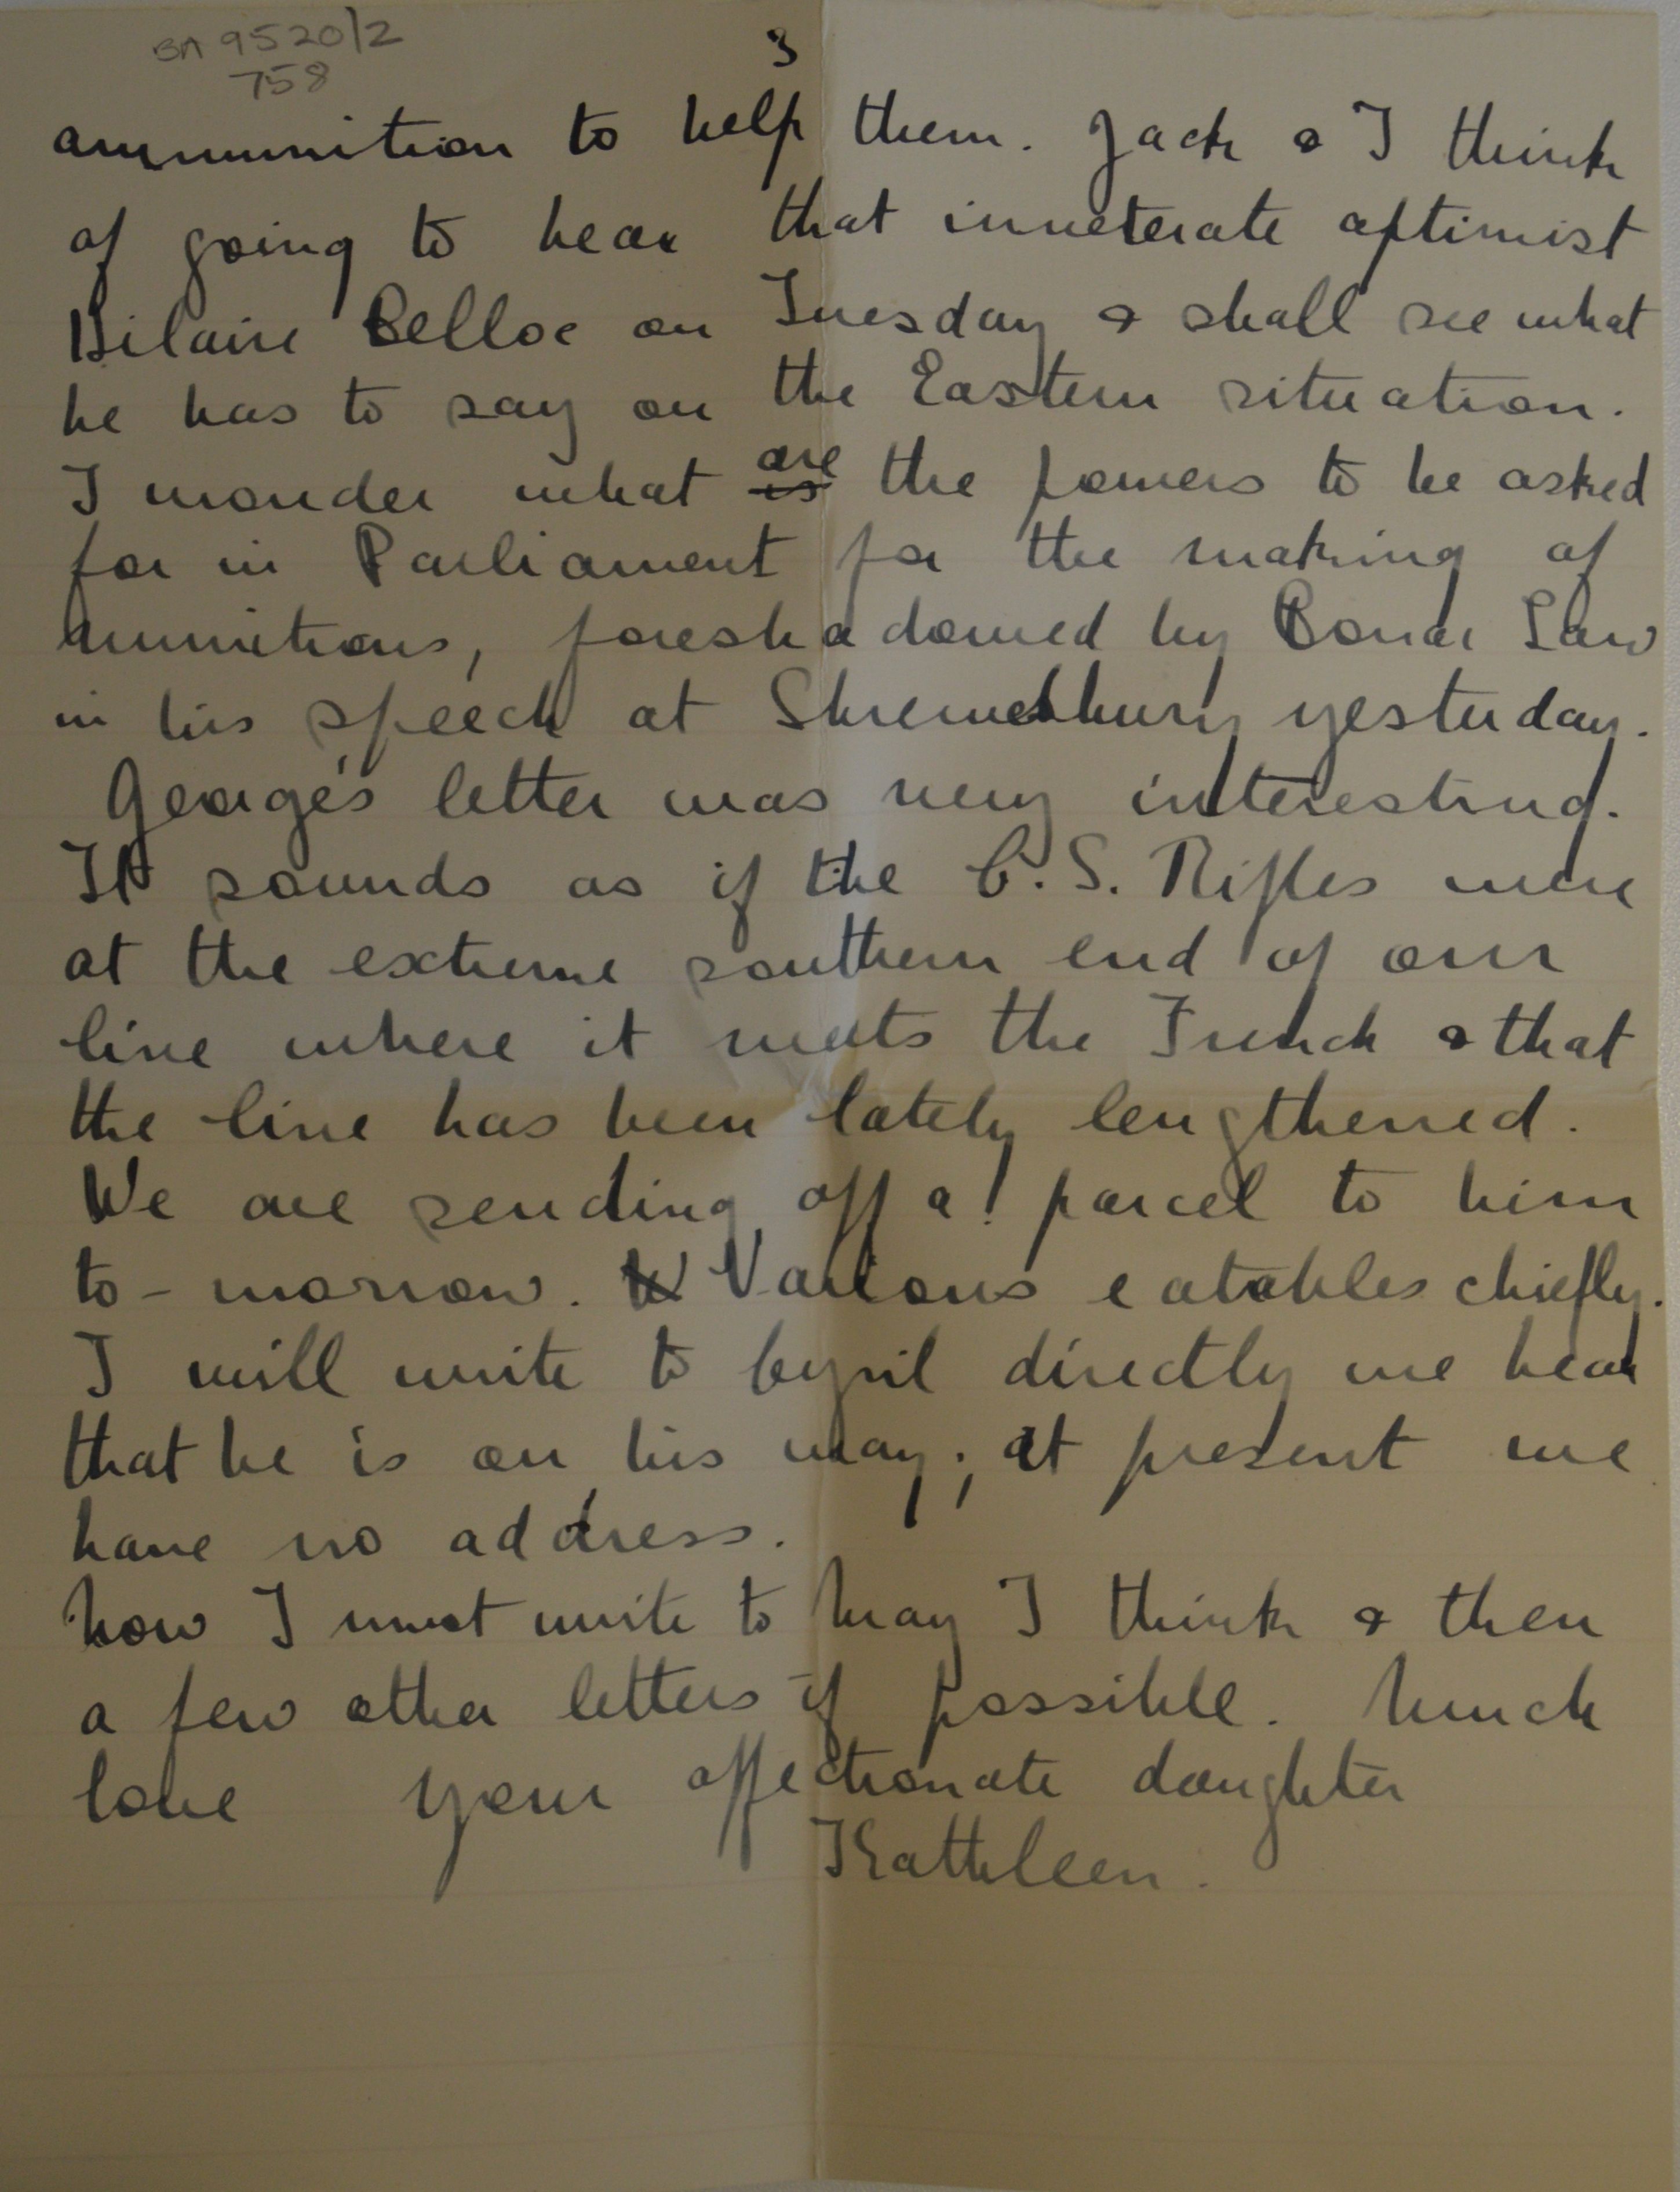 BA 9520/2
758
3
ammunition to help them. Jack & I think
of going to hear that inveterate optimist
Hilaire Belloc on Tuesday & shall see what
he has to say on the Eastern situation.
I wonder what is are the powers to be asked
for in Parliament for the making of
munitions, foreshadowed by Bonar Law
in his speech at Shrewsbury yesterday.
George's letter was very interesting.
It sounds as if the C.S. Rifles were
at the extreme southern end of our
line where it meets the French & that
the line has been lately lengthened.
We are sending off a parcel to him
to-morrow. W Various eatables chiefly.
I will write to Cyril directly we hear
that he is on his way; at present we
have no address.
Now I must write to May I think & then
a few other letters if possible. Much
love your affectionate daughter
Kathleen.